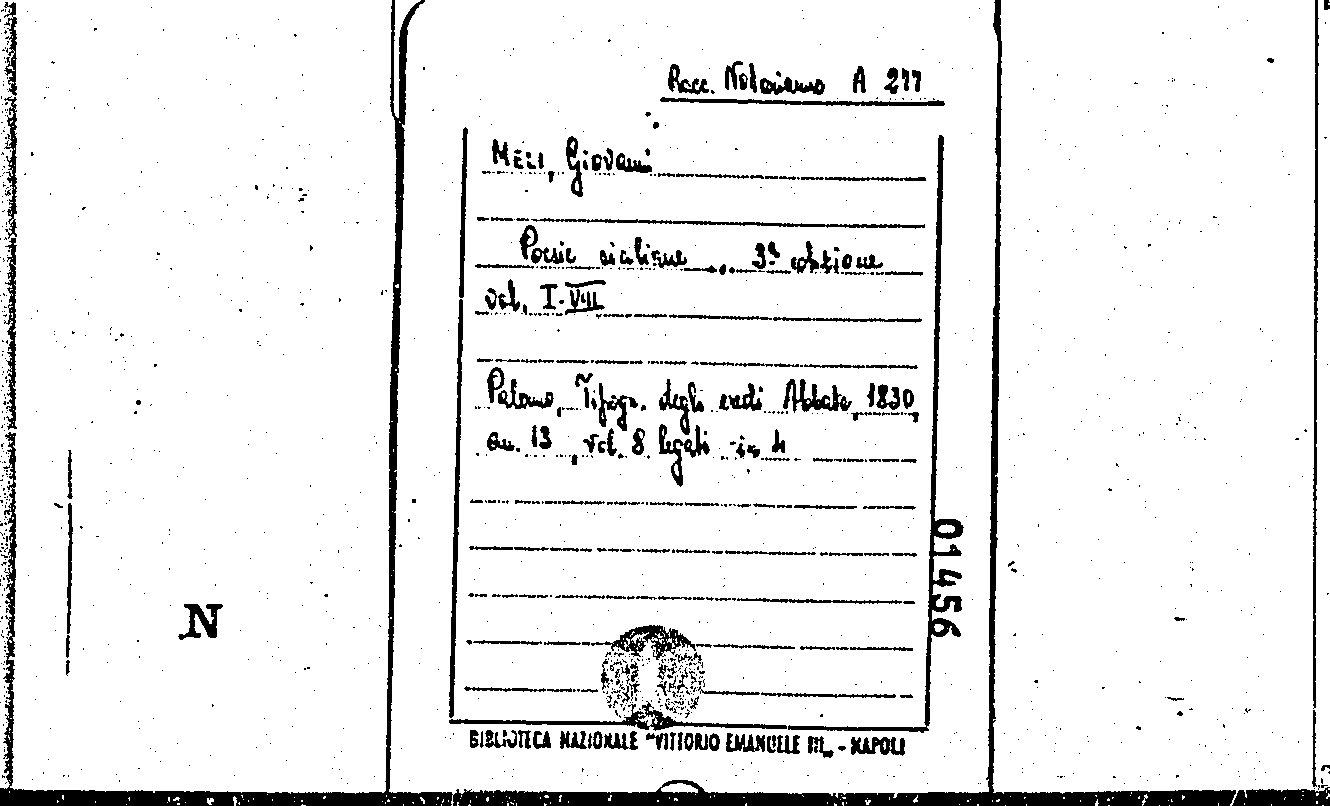 Racc. Notarianno A 277
MELI, Giovanni
Poesie siciliane ... 3ª edizione
vol. I-VIII
Palermo, Tipogr. degli eredi Abbate, 1830,
cm. 13, vol. 8 legati in 4
01456
N
BIBLIOTECA NAZIONALE "VITTORIO EMANUELE III„ - NAPOLI